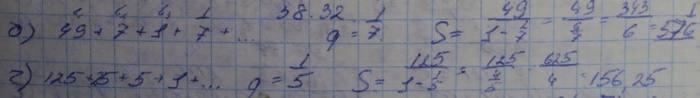 38.32
б) 49 + 7 + 1 + 1/7 + ... q = 1/7 S = 49/(1 - 1/7) = 49/(6/7) = 343/6 = 57 1/6
г) 125 + 25 + 5 + 1 + ... q = 1/5 S = 125/(1 - 1/5) = 125/(4/5) = 625/4 = 156,25